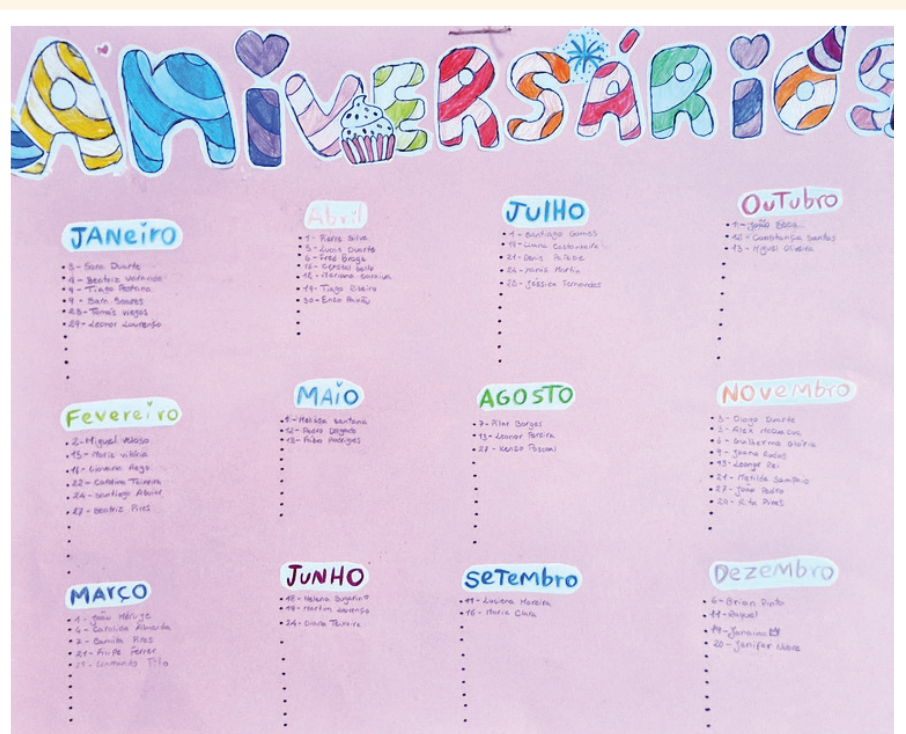 ANIVERSÁRIOS
JANeiro
3 - Sara Duarte
4 - Beatriz
9 - Tiago Pestana
9 - Sara Soares
28 - Tomás Viegas
29 - Leonor Lourenço
Fevereiro
2 - Miguel Veloso
15 - Maria Vitória
Giovana Rego
22 - Carolina Teixeira
24 - Santiago
27 - Beatriz Pires
MARÇO
1 - João
4 - Carolina Almeida
7 - Camila Pires
21 - Filipe Ferrer
Abril
1 - Pietra Silva
5 - Lucas Duarte
6 - Fred Braga
12 - Mariana
19 - Tiago Ribeiro
30 - Enzo Paixão
MAIO
Melissa Santana
12 - Pedro Delgado
Rodrigues
JUNHO
18 - Helena
18 - Martim Lourenço
24 - Diana Teixeira
JUlHO
1 - Santiago Gomes
19 - Luana Castanheira
21 - Denis
24 - Maria Martin
28 - Jéssica Fernandes
AGOSTO
7 - Pilar Borges
13 - Leonor Pereira
27 - Kenzo Pascoal
SeTembro
11 - Luciana Moreira
16 - Maria Clara
OuTubro
João
12 - Constança Santos
13 - Miguel Oliveira
NOVembro
3 - Diogo Duarte
3 - Alex
6 - Guilherme Glória
9 - Joana
13 - Leonor Rei
21 - Matilde Sampaio
27 - João Pedro
29 - Rita Pires
DezeMbro
6 - Brian Pinto
11 - Raquel
19 - Janaina
20 - Jenifer